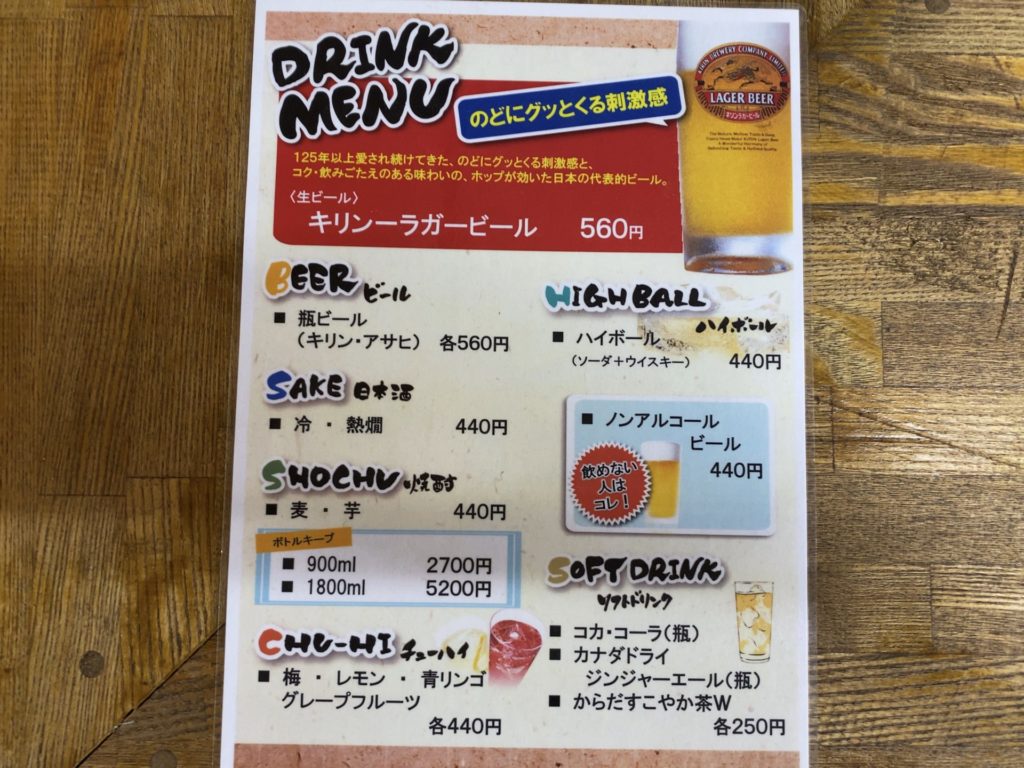 DRINK
MENU
のどにグッとくる刺激感
LAGER BEER
キリンラガービール
125年以上愛され続けてきた、のどにグッとくる刺激感と、
コク・飲みごたえのある味わいの、ホップが効いた日本の代表的ビール。
〈生ビール〉
キリンーラガービール 560円
BEER ビール
■ 瓶ビール
（キリン・アサヒ） 各560円
SAKE 日本酒
■ 冷 ・ 熱燗 440円
SHOCHU 焼酎
■ 麦 ・ 芋 440円
ボトルキープ
■ 900ml 2700円
■ 1800ml 5200円
CHU-HI チューハイ
■ 梅 ・ レモン ・ 青リンゴ
グレープフルーツ
各440円
HIGHBALL
ハイボール
■ ハイボール
（ソーダ＋ウイスキー） 440円
■ ノンアルコール
ビール
440円
飲めない
人は
コレ！
SOFT DRINK
ソフトドリンク
■ コカ・コーラ（瓶）
■ カナダドライ
ジンジャーエール（瓶）
■ からだすこやか茶W
各250円